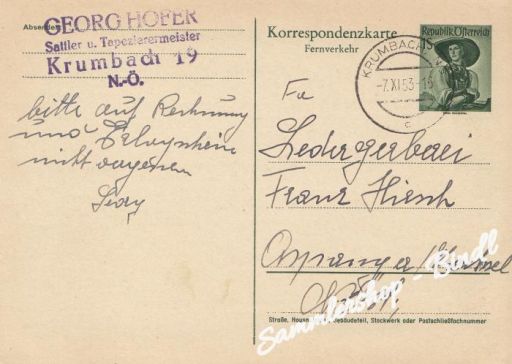 Absender:
GEORG HOFER
Sattler u. Tapezierermeister
Krumbach 19
N.-Ö.
bitte auf Rechnung
und
nicht vergessen
Korrespondenzkarte
Fernverkehr
Republik Österreich
KRUMBACH
-7.XI.53-
c
Fa
Ledergerberei
Franz Hirsch
Aspang
N.Ö.
Straße, Hausnummer, Gebäudeteil, Stockwerk oder Postschließfachnummer
Sammlershop - Bindl